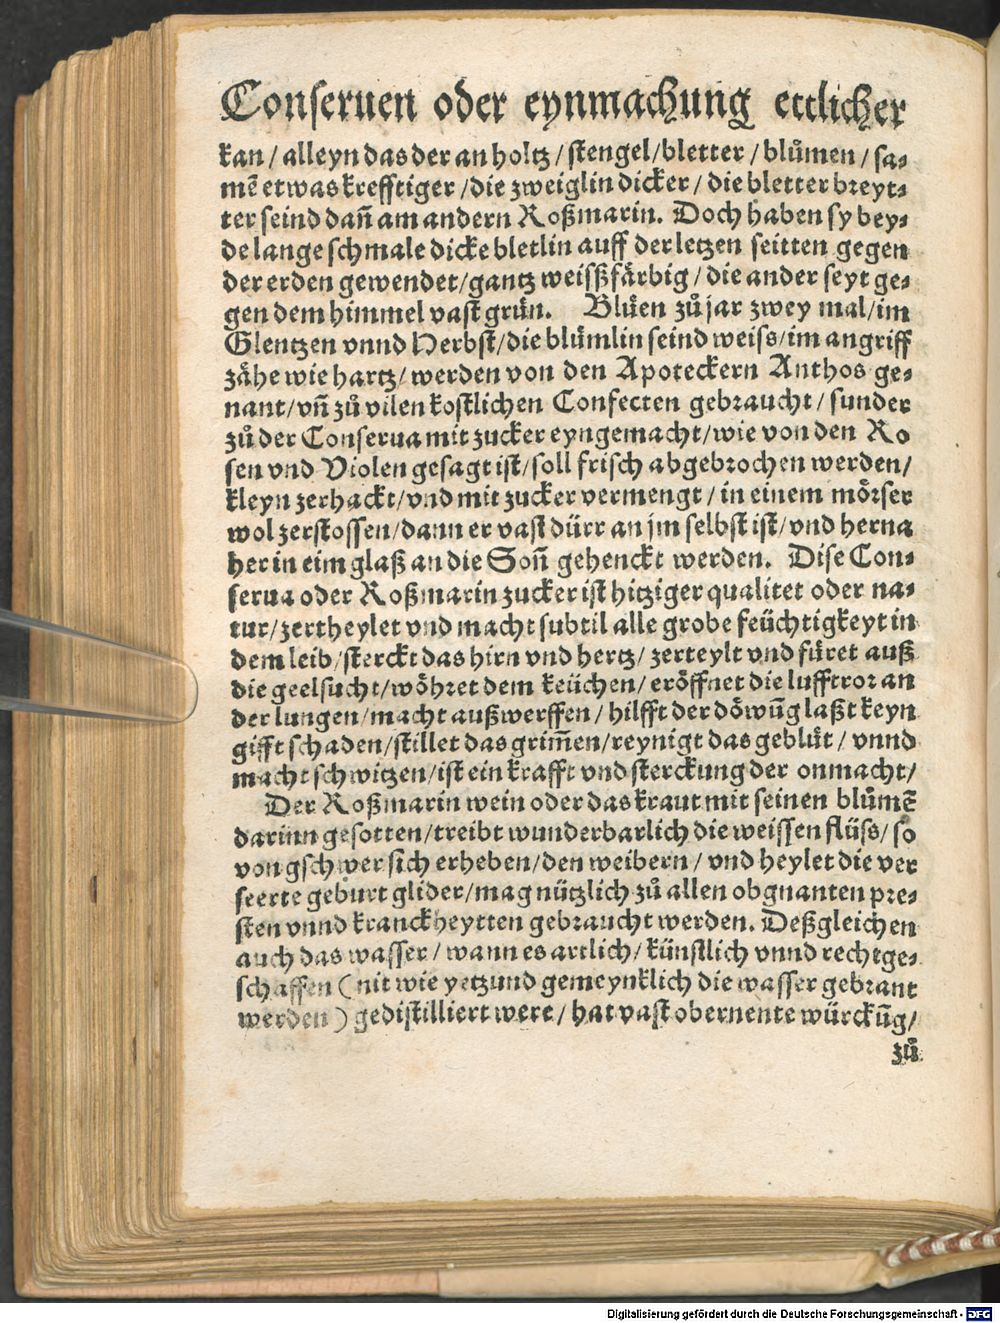 Conseruen oder eynmachung ettlicher
kan / alleyn das der an holtz / stengel / bletter / blůmen / sa⸗
mē etwas krefftiger / die zweiglin dicker / die bletter breyt⸗
ter seind dañ am andern Roßmarin. Doch haben sy bey⸗
de lange schmale dicke bletlin auff der letzen seitten gegen
der erden gewendet / gantz weißfärbig / die ander seyt ge⸗
gen dem himmel vast grün. Blůen zů jar zwey mal / im
Glentzen vnnd Herbst / die blůmlin seind weiss / im angriff
zåhe wie hartz / werden von den Apoteckern Anthos ge⸗
nant / vñ zů vilen kostlichen Confecten gebraucht / sunder
zů der Conserua mit zucker eyngemacht / wie von den Ro
sen vnd Violen gesagt ist / soll frisch abgebrochen werden /
kleyn zerhackt / vnd mit zucker vermengt / in einem mörser
wol zerstossen / dann er vast dürr an jm selbst ist / vnd herna
her in eim glaß an die Soñ gehenckt werden. Dise Con⸗
serua oder Roßmarin zucker ist hitziger qualitet oder na⸗
tur / zertheylet vnd macht subtil alle grobe feüchtigkeyt in
dem leib / sterckt das hirn vnd hertz / zerteylt vnd füret auß
die geelsucht / wöhret dem keüchen / eröffnet die lufftror an
der lungen / macht außwerffen / hilfft der döwūg laßt keyn
gifft schaden / stillet das grim̃en / reynigt das geblüt / vnnd
macht schwitzen / ist ein krafft vnd sterckung der onmacht /
Der Roßmarin wein oder das kraut mit seinen blůmē
darinn gesotten / treibt wunderbarlich die weissen flüss / so
von gschwer sich erheben / den weibern / vnd heylet die ver
seerte geburt glider / mag nützlich zů allen obgnanten pre⸗
sten vnnd kranckheytten gebraucht werden. Deßgleichen
auch das wasser / wann es artlich / künstlich vnnd rechtge⸗
schaffen ( nit wie yetzund gemeynklich die wasser gebrant
werden ) gedistilliert were / hat vast obernente würckūg /
zů
Digitalisierung gefördert durch die Deutsche Forschungsgemeinschaft - DFG